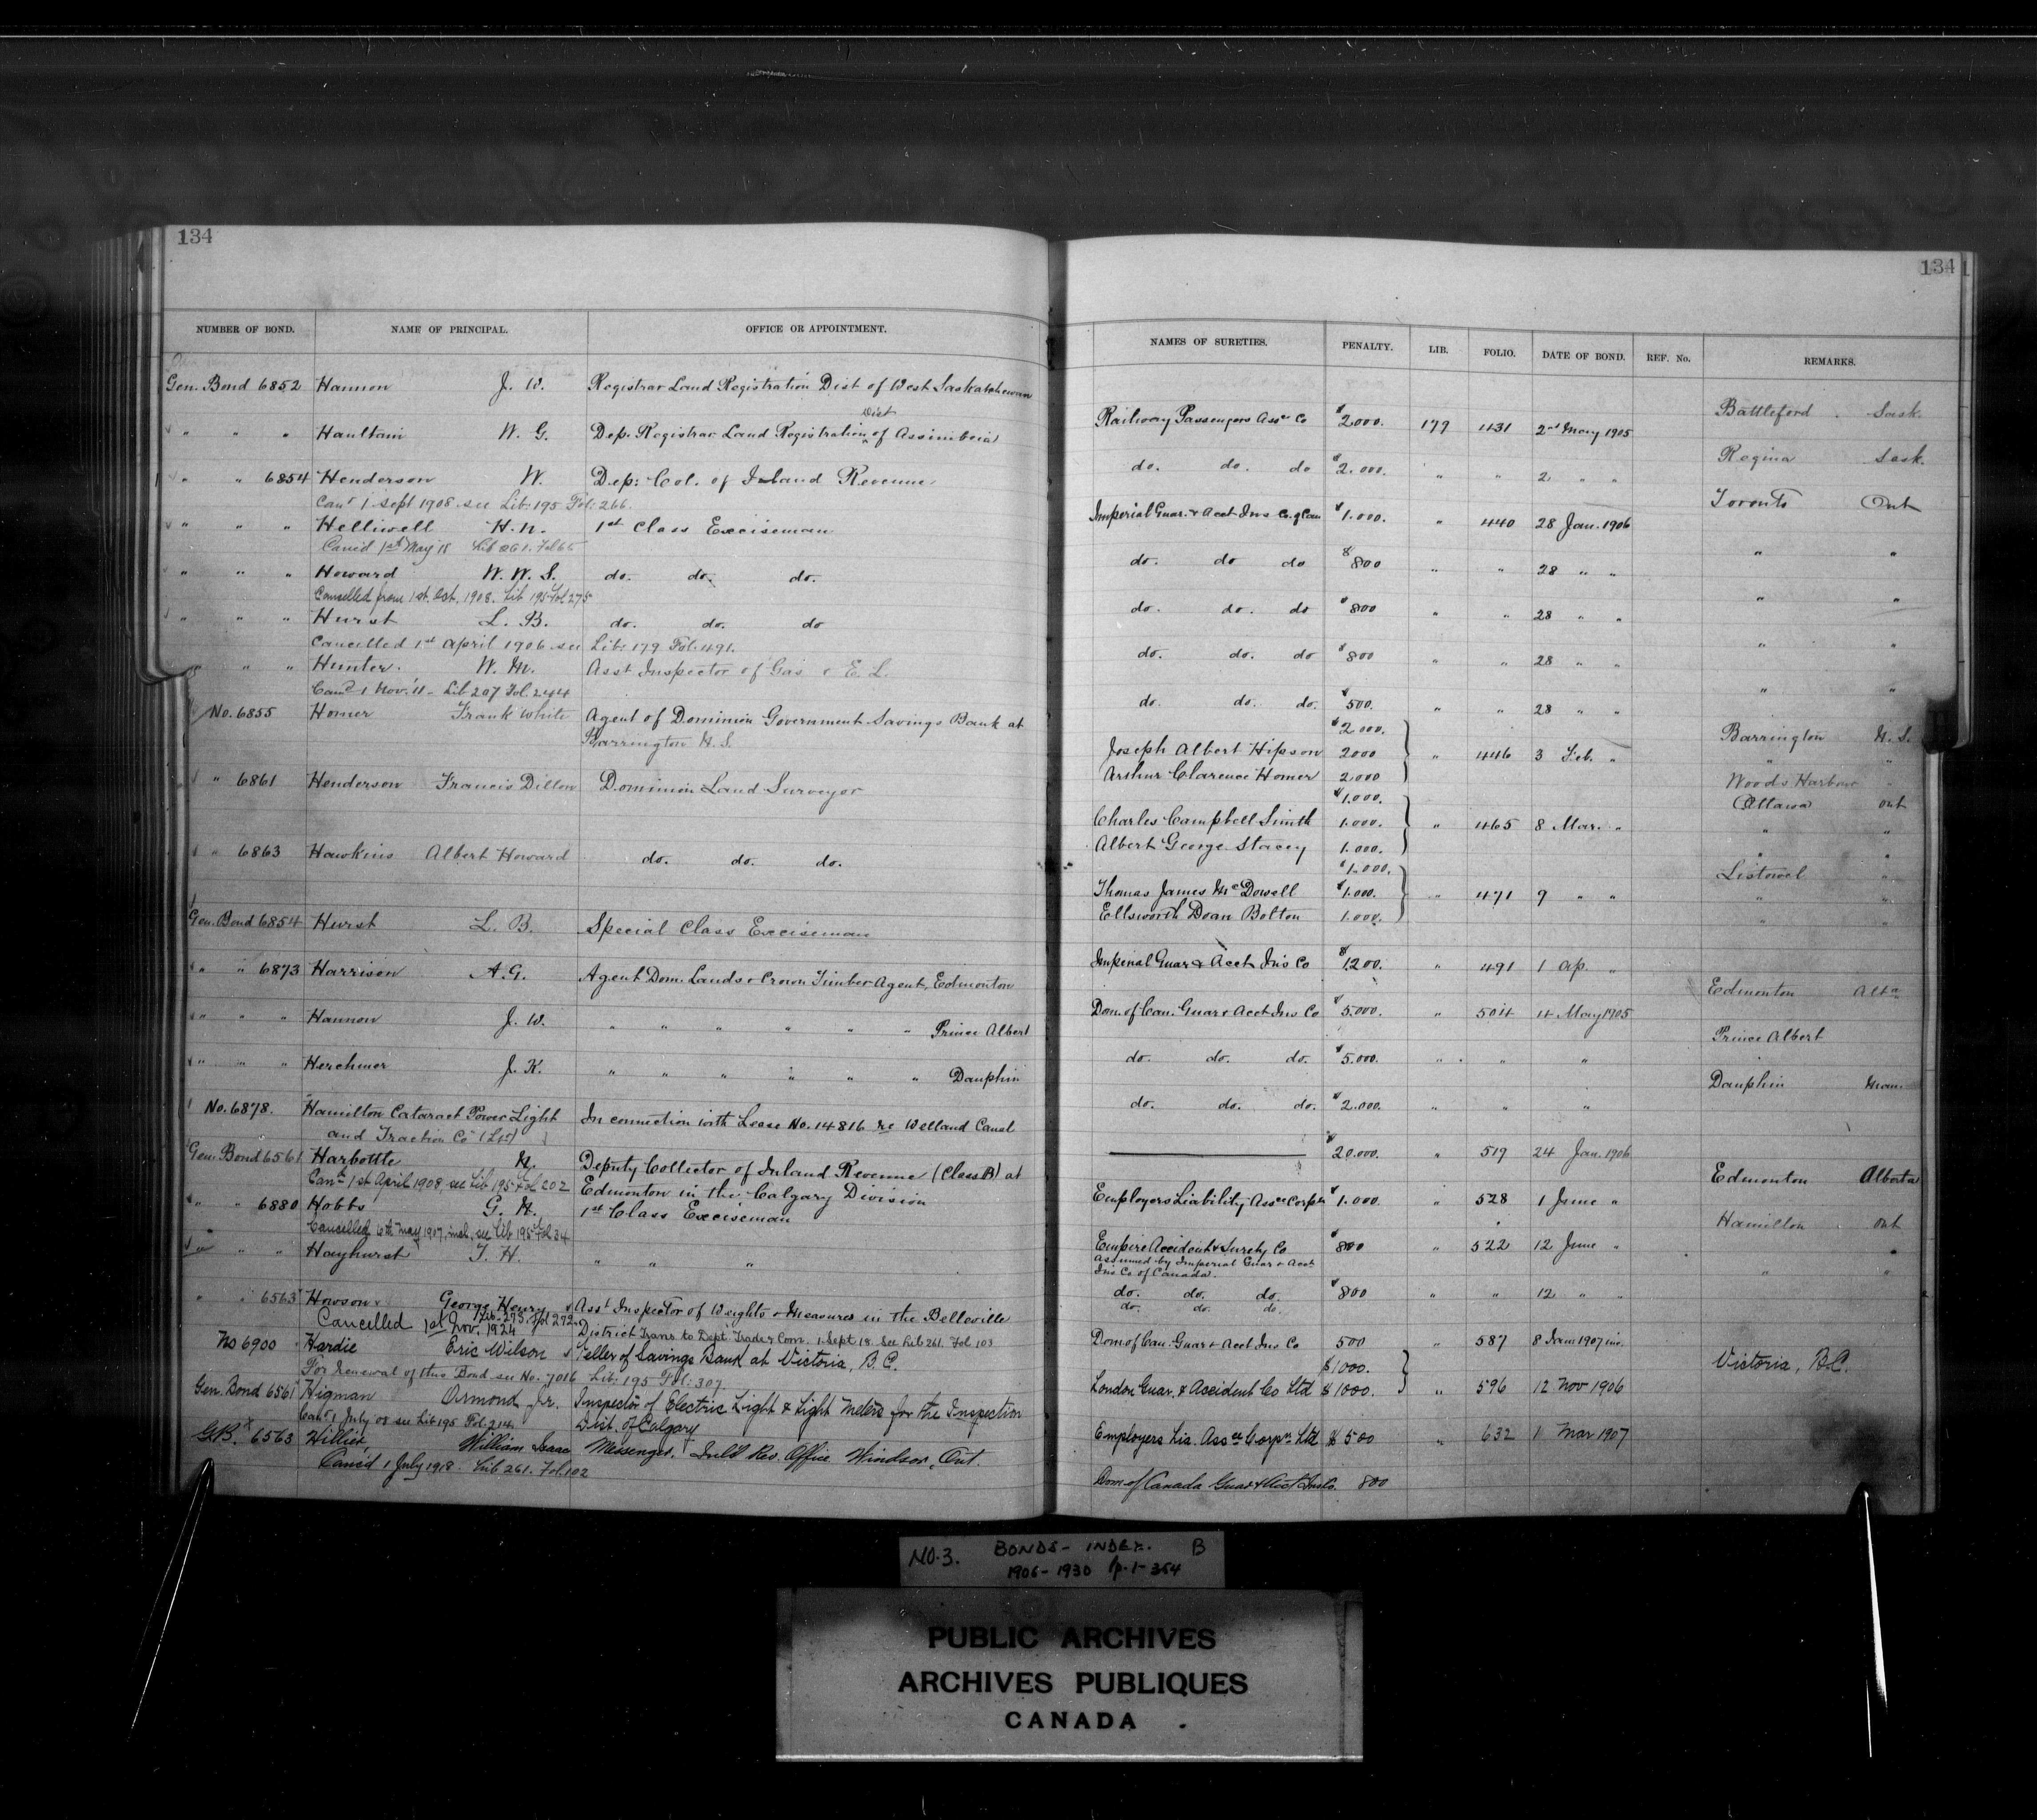 134
NUMBER OF BOND. NAME OF PRINCIPAL. OFFICE OR APPOINTMENT.
Gen. Bond 6852 Hannon J. W. Registrar Land Registration Dist of West Saskatchewan
" " " Haultain W. G. Dep. Registrar Land Registration Dist of Assiniboia
" " 6854 Henderson W. Dep: Col. of Inland Revenue
Can'd 1 Sept 1908 see Lib: 195 Fol: 266.
" " " Helliwell H. N. 1st Class Exciseman
Canc'd 1st May 18 Lib 261. Fol 65
" " " Howard W. W. S. do. do. do.
Cancelled from 1st Oct. 1908. Lib 195 Fol 275
" " " Hurst L. B. do. do. do
Cancelled 1st April 1906 see Lib: 179 Fol. 491.
" " " Hunter. W. M. Asst Inspector of Gas & E. L.
Canc'd 1 Nov. '11 - Lib 207 Fol. 244
No. 6855 Homer Frank White Agent of Dominion Government Savings Bank at
Barrington N. S.
" 6861 Henderson Francis Dillon Dominion Land Surveyor
" 6863 Hawkins Albert Howard do. do. do.
Gen. Bond 6854 Hurst L. B. Special Class Exciseman
" " 6873 Harrison A. G. Agent Dom. Lands & Crown Timber Agent, Edmonton
" " " Hannon J. W. " " " " " " Prince Albert
" " " Herchmer J. K. " " " " " " Dauphin
No. 6878. Hamilton Cataract Power Light In connection with Lease No. 14816 re Welland Canal
and Traction Co (Ltd)
Gen. Bond 6561 Harbottle N. Deputy Collector of Inland Revenue (Class B) at
Can'd 1st April 1908, see Lib 195 Fol 202 Edmonton in the Calgary Division
" " 6880 Hobbs G. N. 1st Class Exciseman
Cancelled 6th May 1907, incl, see Lib 195 Fol 34
" " " Hayhurst T. H. " " "
" " 6563 Howson George Henry Asst Inspector of Weights & Measures in the Belleville
Cancelled 1st Nov. 1924 Lib 275. Fol 272. District Trans. to Dept Trade & Com. 1 Sept 18. See Lib 261. Fol 103
No 6900 Hardie Eric Wilson Teller of Savings Bank at Victoria, B.C.
For Renewal of this Bond see No. 7016 Lib: 195 Fol: 307.
Gen. Bond 6561 Higman Ormond Jr. Inspector of Electric Light & Light Meters for the Inspection
Can'd 1 July 08 see Lib 195 Fol. 214 Dist. of Calgary
G.B. 6563 Hillier, William Isaac Messenger, Inl'd Rev. Office Windsor, Ont.
Canc'd 1 July 1918. Lib 261. Fol. 102
134
NAMES OF SURETIES. PENALTY. LIB. FOLIO. DATE OF BOND. REF. No. REMARKS.
Railway Passengers Assce Co $2000. 179 431 2nd May 1905 Battleford Sask.
do. do. do $2.000. " " 2 " " Regina Sask.
Imperial Guar. & Acct Ins Co. of Can $1.000. " 440 28 Jan. 1906 Toronto Ont
do. do do $800 " " 28 " " " "
do. do. do $800 " " 28 " " " "
do. do. do $800 " " 28 " " " "
do. do. do. $500. " " 28 " " " "
$2000. Barrington N. S.
Joseph Albert Hipson 2000 " 446 3 Feb. " " "
Arthur Clarence Homer 2000 Woods Harbour "
$1.000. Ottawa Ont
Charles Campbell Smith 1.000. " 465 8 Mar. " " "
Albert George Stacey 1.000. " "
$1.000. Listowel "
Thomas James McDowell $1.000. " 471 9 " " " "
Ellsworth Doan Bolton 1.000. " "
Imperial Guar & Acct Ins Co $1200. " 491 1 Ap. "
Dom. of Can. Guar & Acct Ins Co $5.000. " 504 14 May 1905 Edmonton Alta
do. do. do. $5.000. " " " Prince Albert
do. do. do. $2.000. " " " Dauphin Man.
$20.000. " 519 24 Jan. 1906
Employers Liability Assce Corpn $1.000. " 528 1 June " Edmonton Alberta
Empire Accident & Surety Co $800 " 522 12 June " Hamilton Ont
Assumed by Imperial Guar & Acct
Ins Co of Canada.
do. do. do. $800 " " 12 " " " "
do. do. do.
Dom of Can. Guar & Acct Ins Co 500 " 587 8 Jan 1907 inc.
$1000. Victoria, B.C.
London Guar. & Accident Co Ltd $1000. " 596 12 Nov 1906
Employers Lia. Assce Corpn Ltd $500 " 632 1 Mar 1907
Dom. of Canada Guar & Acct Ins Co. 800
NO. 3. BONDS - INDEX. B
1906 - 1930 p. 1-364
PUBLIC ARCHIVES
ARCHIVES PUBLIQUES
CANADA